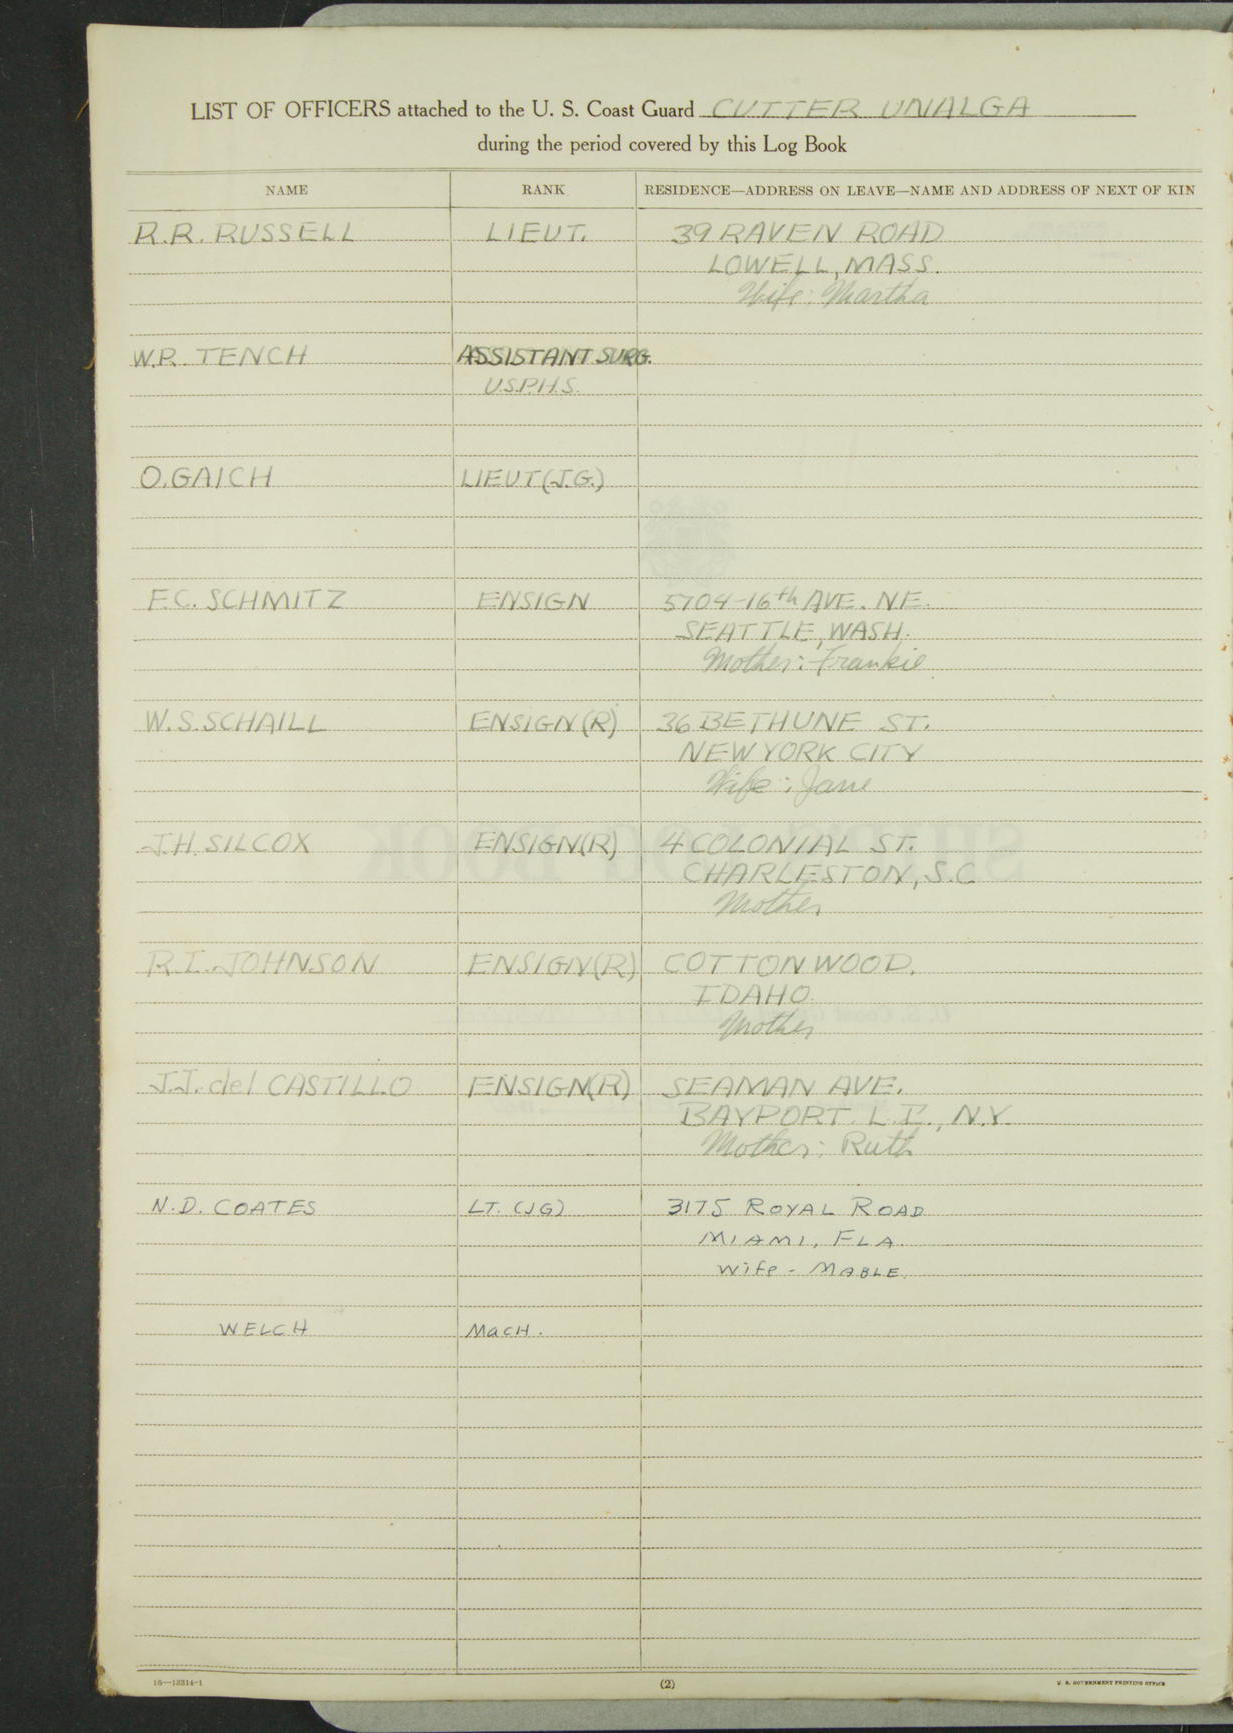 LIST OF OFFICERS attached to the U. S. Coast Guard CUTTER UNALGA
during the period covered by this Log Book
NAME RANK RESIDENCE—ADDRESS ON LEAVE—NAME AND ADDRESS OF NEXT OF KIN
R.R. RUSSELL LIEUT. 39 RAVEN ROAD
LOWELL, MASS.
Wife: Martha
W.P. TENCH ASSISTANT SURG.
U.S.P.H.S.
O. GAICH LIEUT (J.G.)
F.C. SCHMITZ ENSIGN 5704-16th AVE. N.E.
SEATTLE, WASH.
Mother: Frankie
W.S. SCHAILL ENSIGN (R) 36 BETHUNE ST.
NEW YORK CITY
Wife: Jane
J.H. SILCOX ENSIGN(R) 4 COLONIAL ST.
CHARLESTON, S.C
Mother
R.I. JOHNSON ENSIGN(R) COTTONWOOD,
IDAHO
Mother
J.J. del CASTILLO ENSIGN(R) SEAMAN AVE.
BAYPORT. L.I., N.Y.
Mother: Ruth
N.D. COATES LT. (JG) 3175 ROYAL ROAD
MIAMI, FLA.
Wife - MABLE.
WELCH MacH.
16—13314-1 (2) U. S. GOVERNMENT PRINTING OFFICE